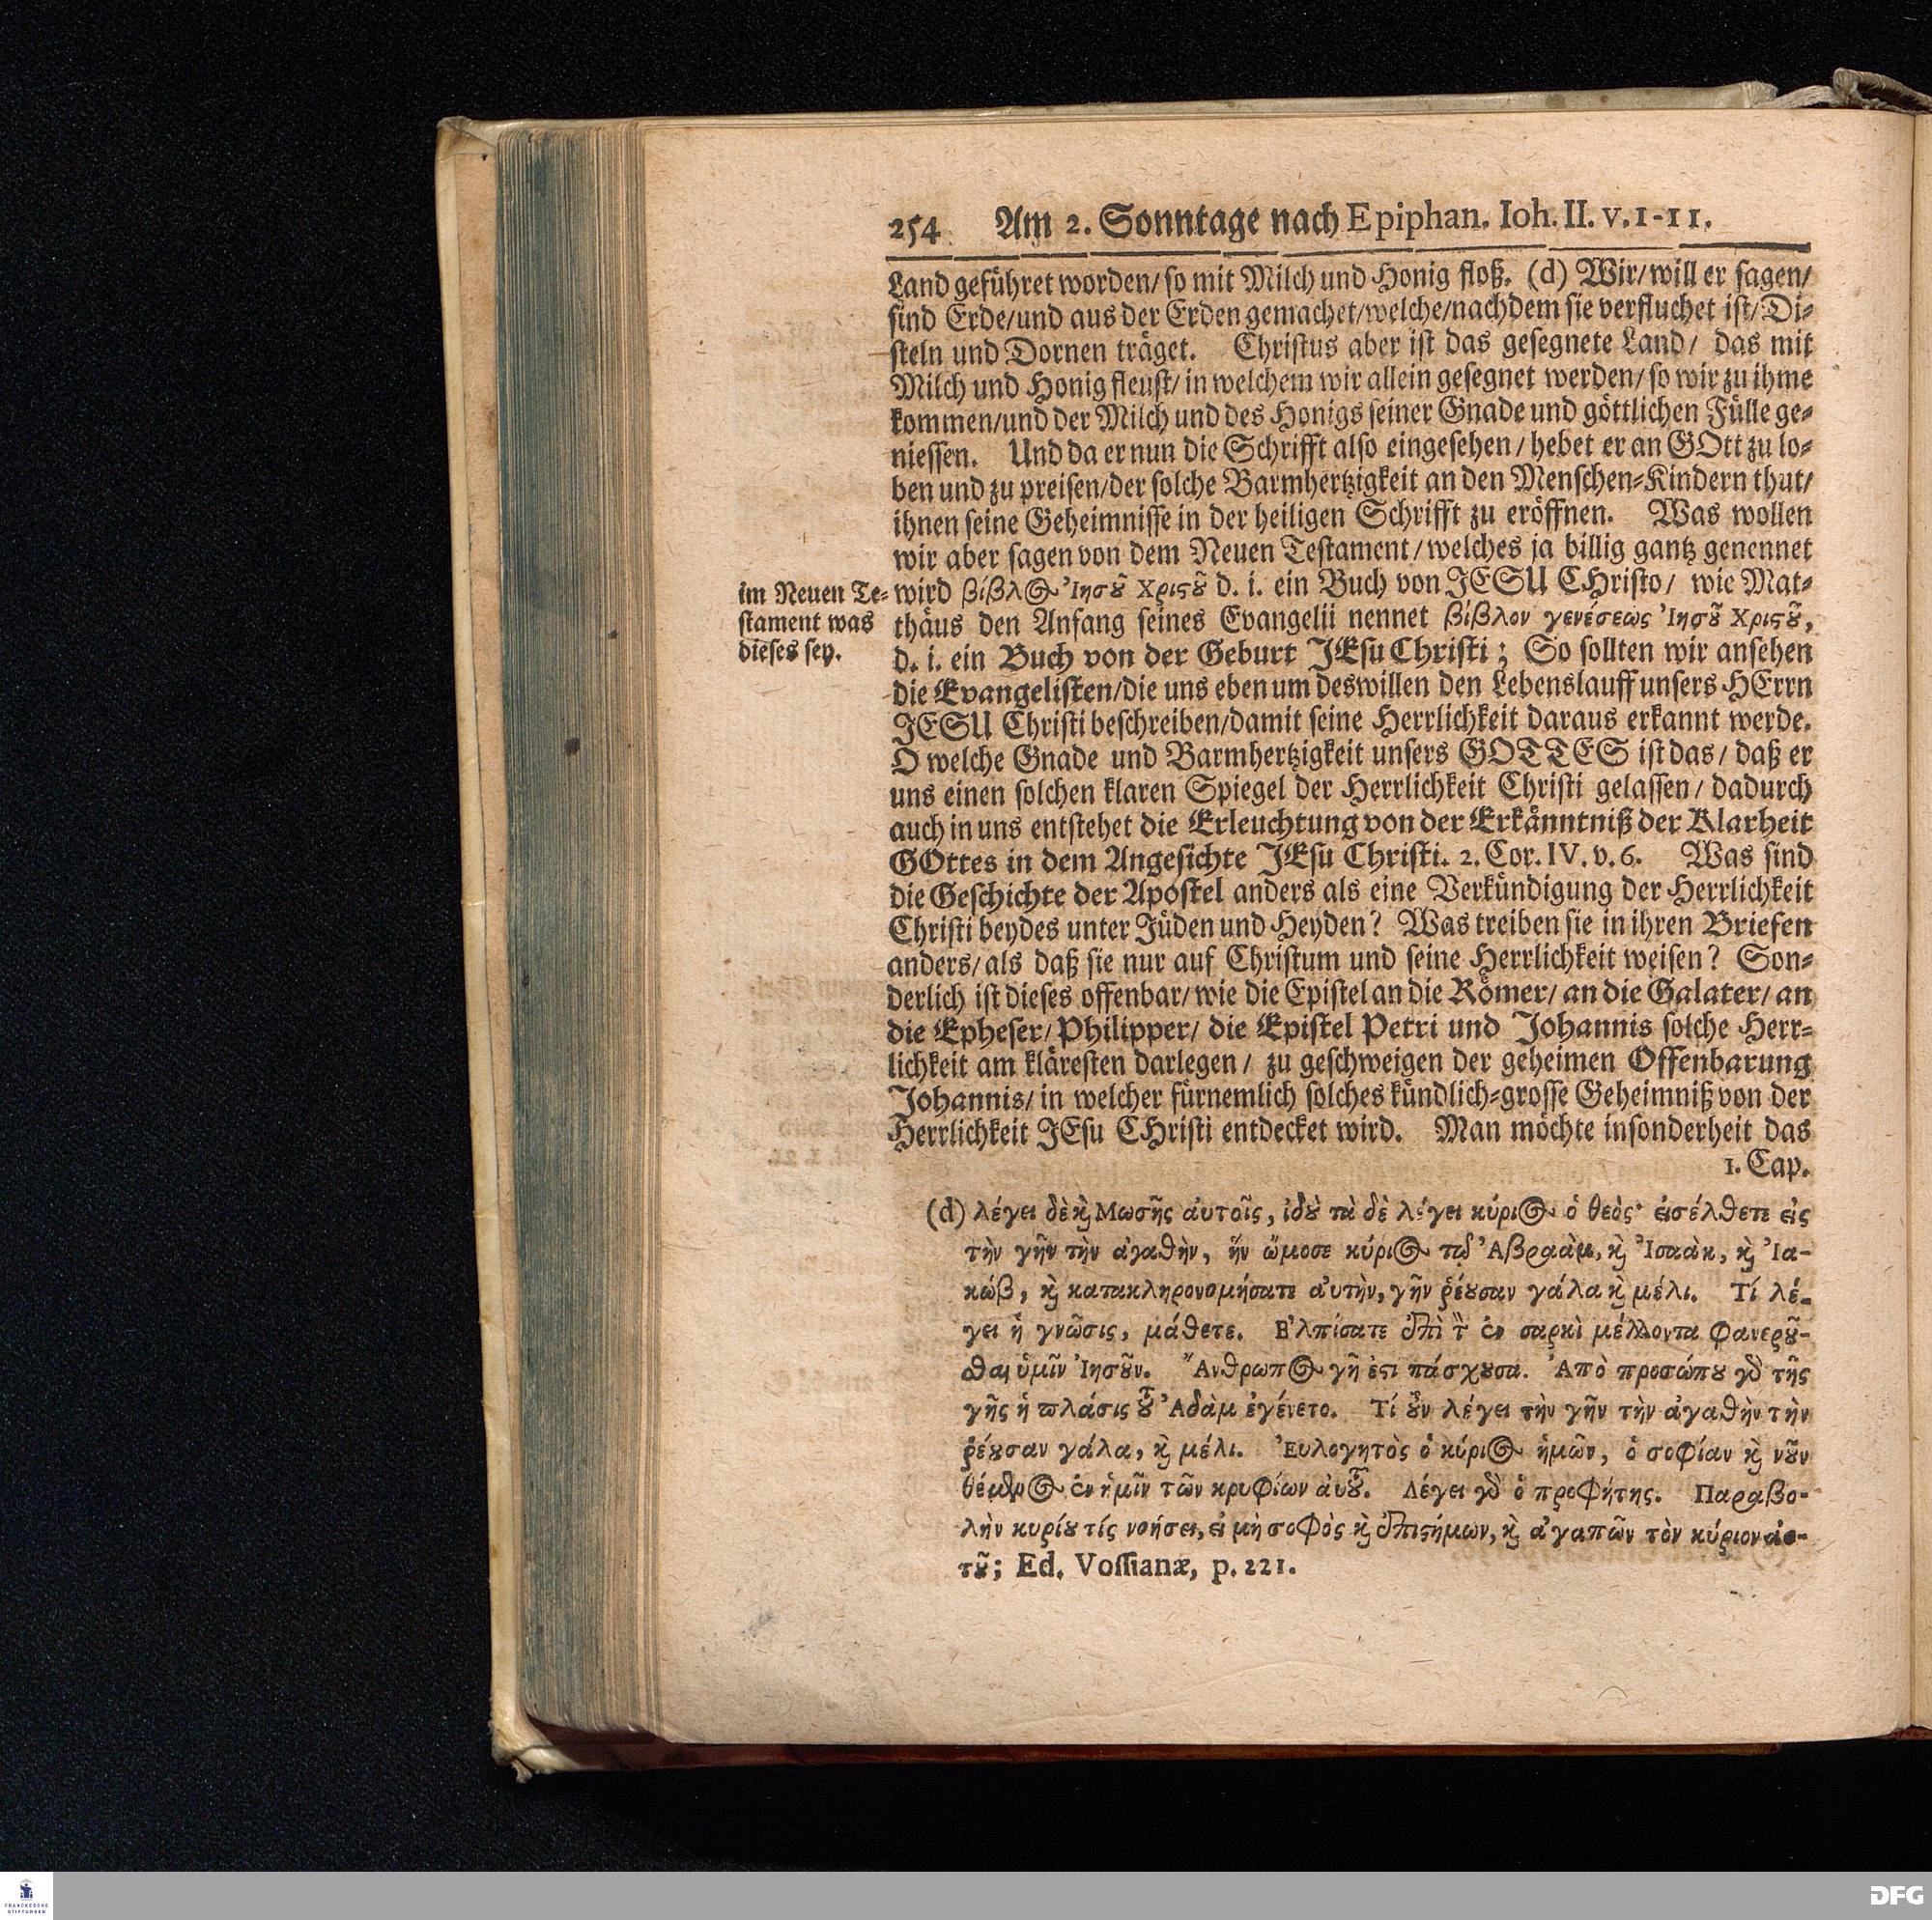 254 Am 2. Sonntage nach Epiphan. Ioh. II. v. 1-11.
Land geführet worden/ so mit Milch und Honig floß. (d) Wir/ will er sagen/
sind Erde/ und aus der Erden gemachet/ welche/ nachdem sie verfluchet ist/ Di-
steln und Dornen träget. Christus aber ist das gesegnete Land/ das mit
Milch und Honig fleust/ in welchem wir allein gesegnet werden/ so wir zu ihme
kommen/ und der Milch und des Honigs seiner Gnade und göttlichen Fülle ge-
niessen. Und da er nun die Schrifft also eingesehen/ hebet er an GOtt zu lo-
ben und zu preisen/ der solche Barmhertzigkeit an den Menschen-Kindern thut/
ihnen seine Geheimnisse in der heiligen Schrifft zu eröffnen. Was wollen
wir aber sagen von dem Neuen Testament/ welches ja billig gantz genennet
wird βίβλος Ἰησοῦ Χριστοῦ d. i. ein Buch von JESU CHristo/ wie Mat-
thäus den Anfang seines Evangelii nennet βίβλον γενέσεως Ἰησοῦ Χριστοῦ,
d. i. ein Buch von der Geburt JEsu Christi; So sollten wir ansehen
die Evangelisten/ die uns eben um deswillen den Lebenslauff unsers HErrn
JESU Christi beschreiben/ damit seine Herrlichkeit daraus erkannt werde.
O welche Gnade und Barmhertzigkeit unsers GOTTES ist das/ daß er
uns einen solchen klaren Spiegel der Herrlichkeit Christi gelassen/ dadurch
auch in uns entstehet die Erleuchtung von der Erkänntniß der Klarheit
GOttes in dem Angesichte JEsu Christi. 2. Cor. IV. v. 6. Was sind
die Geschichte der Apostel anders als eine Verkündigung der Herrlichkeit
Christi beydes unter Jüden und Heyden? Was treiben sie in ihren Briefen
anders/ als daß sie nur auf Christum und seine Herrlichkeit weisen? Son-
derlich ist dieses offenbar/ wie die Epistel an die Römer/ an die Galater/ an
die Epheser/ Philipper/ die Epistel Petri und Johannis solche Herr-
lichkeit am kläresten darlegen/ zu geschweigen der geheimen Offenbarung
Johannis/ in welcher fürnemlich solches kündlich-grosse Geheimniß von der
Herrlichkeit JEsu CHristi entdecket wird. Man möchte insonderheit das
1. Cap.
im Neuen Te-
stament was
dieses sey.
(d) λέγει δὲ καὶ Μωσῆς ἀυτοῖς, ἰδοὺ τὰ δὲ λέγει κύριος ὁ θεὸς· εἰσέλθετε εἰς
τὴν γῆν τὴν ἀγαθὴν, ἥν ὤμοσε κύριος τῷ Ἀβραὰμ, καὶ Ἰσαὰκ, καὶ Ἰα-
κώβ, καὶ κατακληρονομήσατε ἀυτὴν, γῆν ῥέουσαν γάλα καὶ μέλι. Τί λέ-
γει ἡ γνῶσις, μάθετε. Ἐλπίσατε ἐπὶ τὸν ἐν σαρκὶ μέλλοντα φανεροῦ-
σθαι ὑμῖν Ἰησοῦν. Ἄνθρωπος γῆ ἐστι πάσχουσα. Ἀπὸ προσώπου γὰρ τῆς
γῆς ἡ πλάσις τοῦ Ἀδὰμ ἐγένετο. Τί οὖν λέγει τὴν γῆν τὴν ἀγαθὴν τὴν
ῥέουσαν γάλα, καὶ μέλι. Ἐυλογητὸς ὁ κύριος ἡμῶν, ὁ σοφίαν καὶ νοῦν
θέμενος ἐν ἡμῖν τῶν κρυφίων ἀυτοῦ. Λέγει γὰρ ὁ προφήτης. Παραβο-
λὴν κυρίου τίς νοήσει, εἰ μὴ σοφὸς καὶ ἐπιστήμων, καὶ ἀγαπῶν τὸν κύριον ἀυ-
τοῦ; Ed. Vossianæ, p. 221.
FRANCKESCHE
STIFTUNGEN
DFG